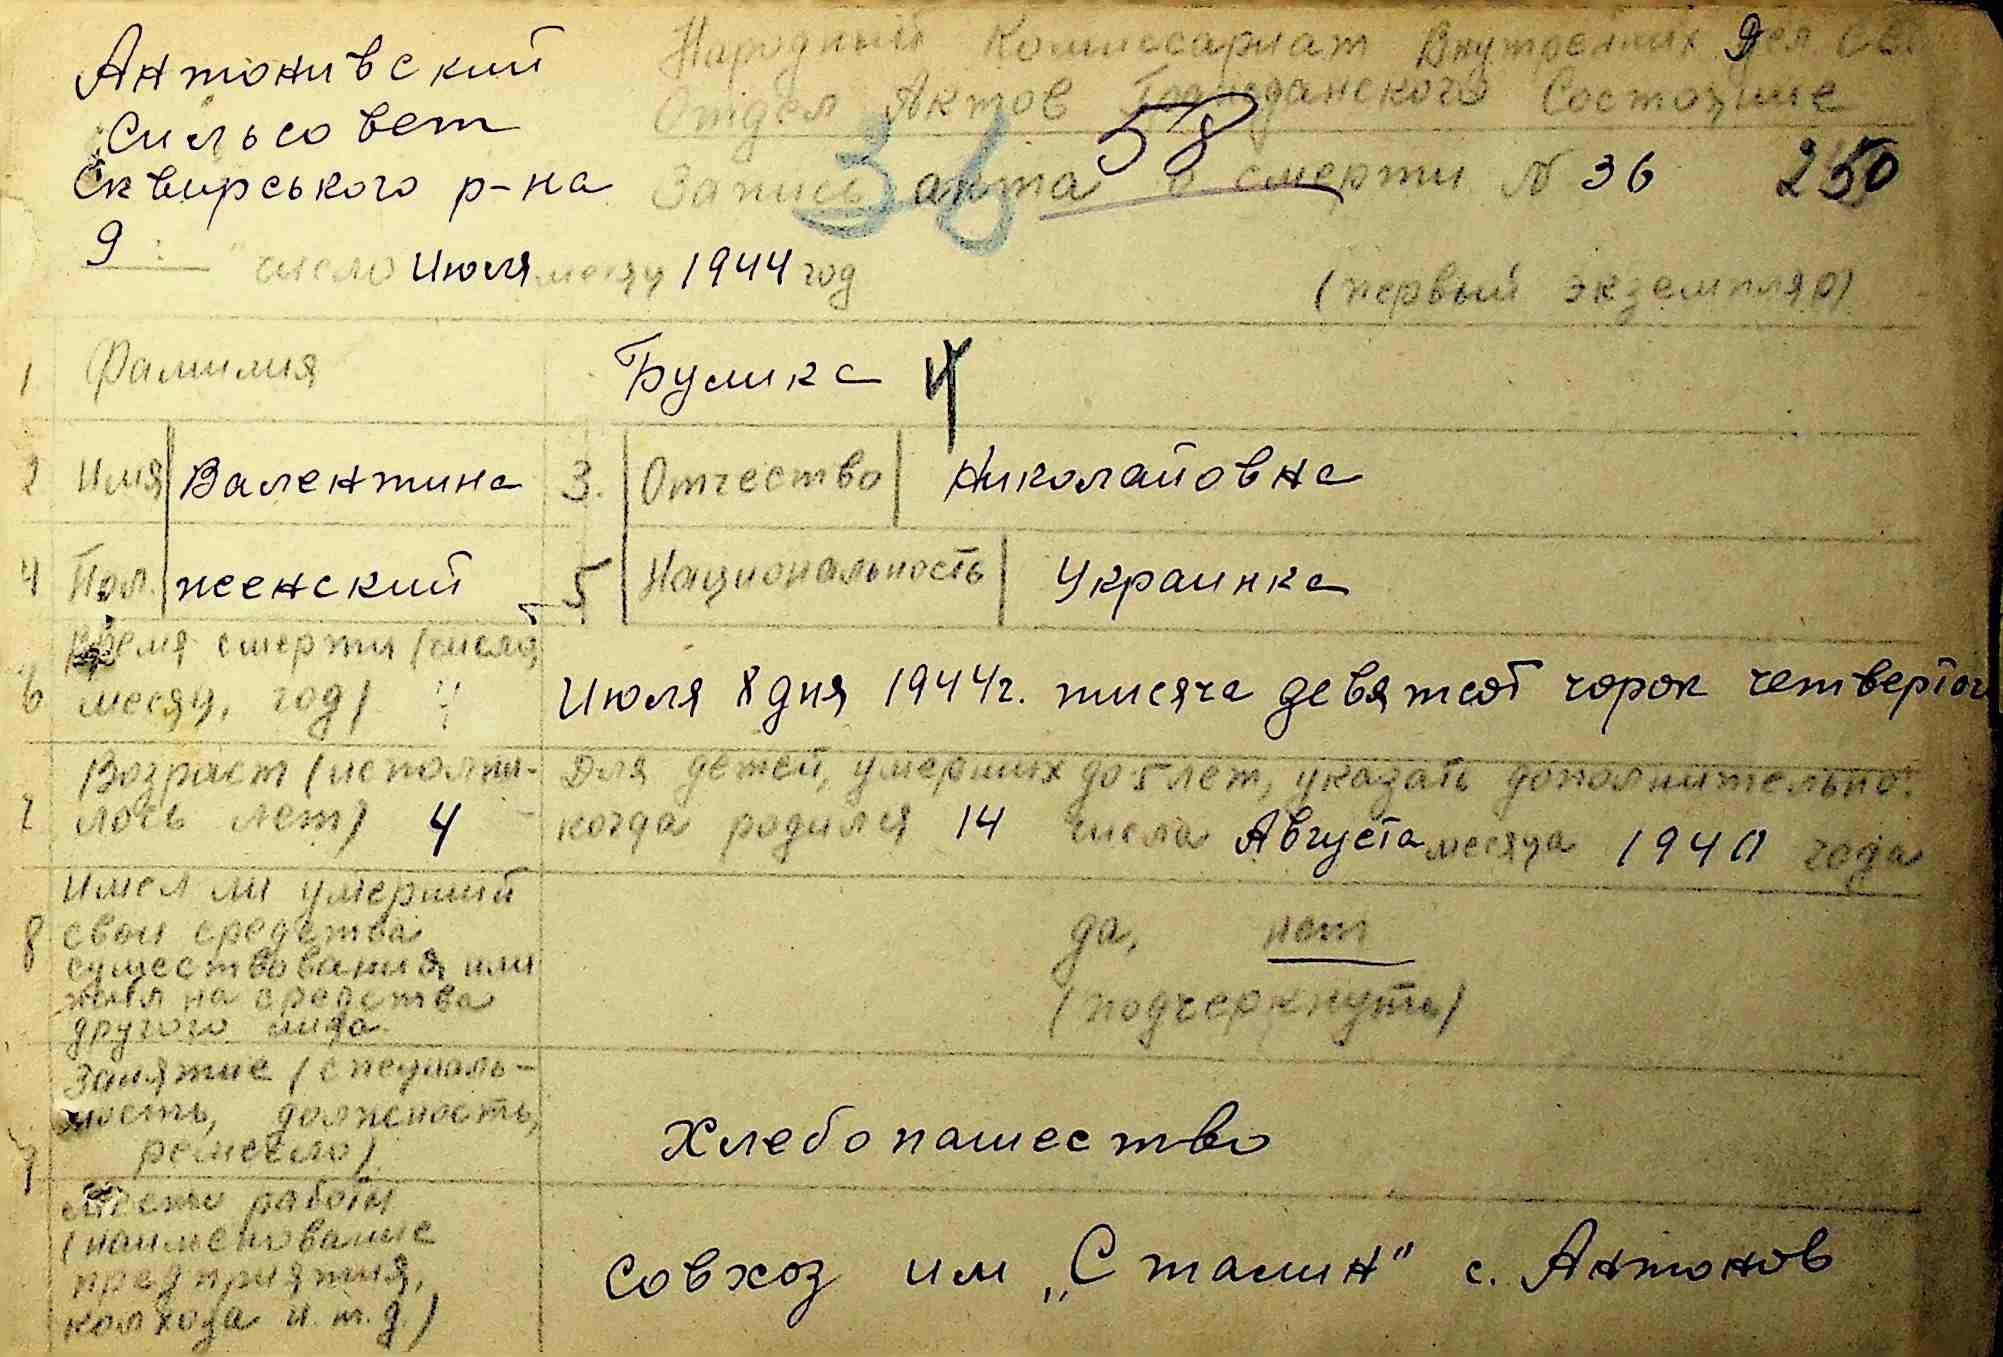 Антонивский
Сильсовет
Сквирського р-на
Народный Комиссариат Внутренних Дел СС.
Отдел Актов Гражданского Состояние
38 58
Запись акта о смерти № 36 250
9 " число Июля месяц 1944 год
(первый экземпляр)
1 Фамилия
2 Имя Валентина 3. Отчество Николайовна
4 Пол. женский 5 Национальность Украинка
6 Время смерти (число, месяц, год) Июля 8 дня 1944г. тисяча девятсот чорок четвертог
7 Возраст (исполни-
лось лет) 4
Для детей, умерших до 5 лет, указать дополнительно:
когда родился 14 числа Августа месяца 1940 года
8 Имел ли умерший
свои средства
существования или
жил на средства
другого лица
да, нет
(подчеркнуть)
9 Занятие (специаль-
ность, должность,
ремесло)
Хлебопашество
Место работы
(наименование
предприятия,
колхоза и.т.д.)
совхоз им „Сталин" с. Антонов